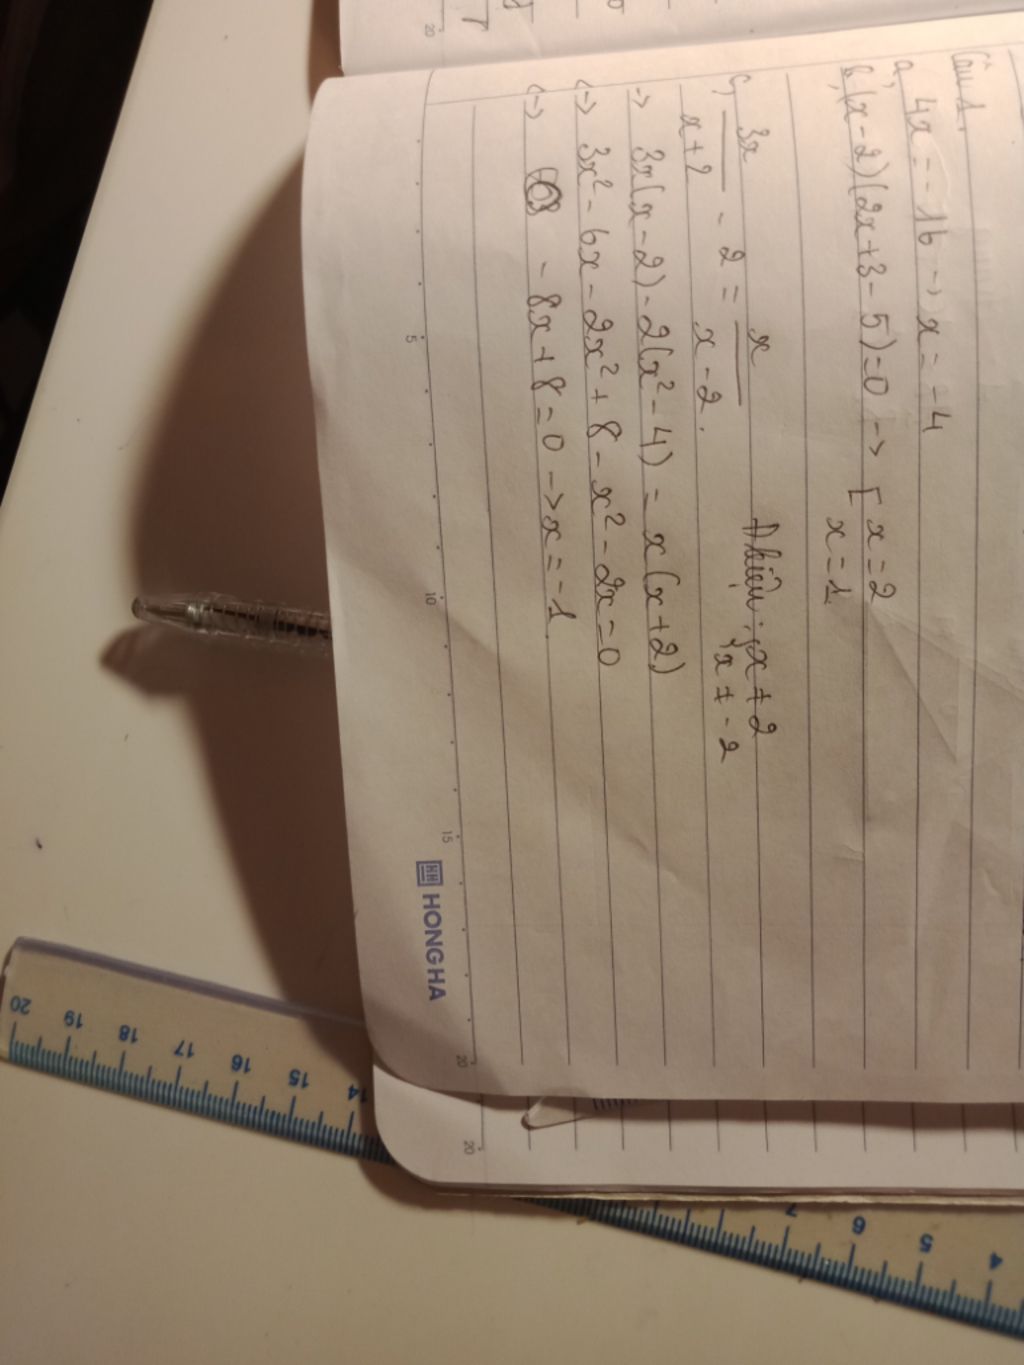 Câu 1.
a, 4x = -16 -> x = -4
b, (x-2)(2x+3-5)=0 -> [ x=2
x=1
c, 3x/x+2 - 2 = x/x-2. Đkiện: { x ≠ 2
x ≠ -2
-> 3x(x-2)-2(x²-4) = x(x+2)
<-> 3x²-6x-2x²+8-x²-2x=0
<-> -8x+8=0 -> x=-1
5
10
15
20
HH HONGHA
20
20
20 19 18 17 16 15 14
7 6 5 4